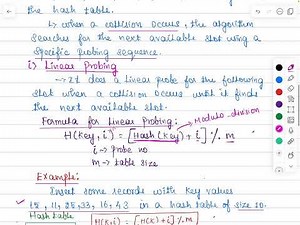 the hash table.
↳ when a collision occurs, the algorithm
searches for the next available slot using a
specific probing sequence.
i) Linear Probing
↳ It does a linear probe for the following
slot when a collision occurs until it finds
the next available slot.
Formula for Linear Probing:
Modulo-division
H(Key, i) = [Hash(Key) + i] % m
i → probe no
m → table size
Example:
Insert some records with key values
15, 11, 25, 33, 16, 43 in a hash table of size 10.
Hash table
H(K, i) = [H(K) + i] % m